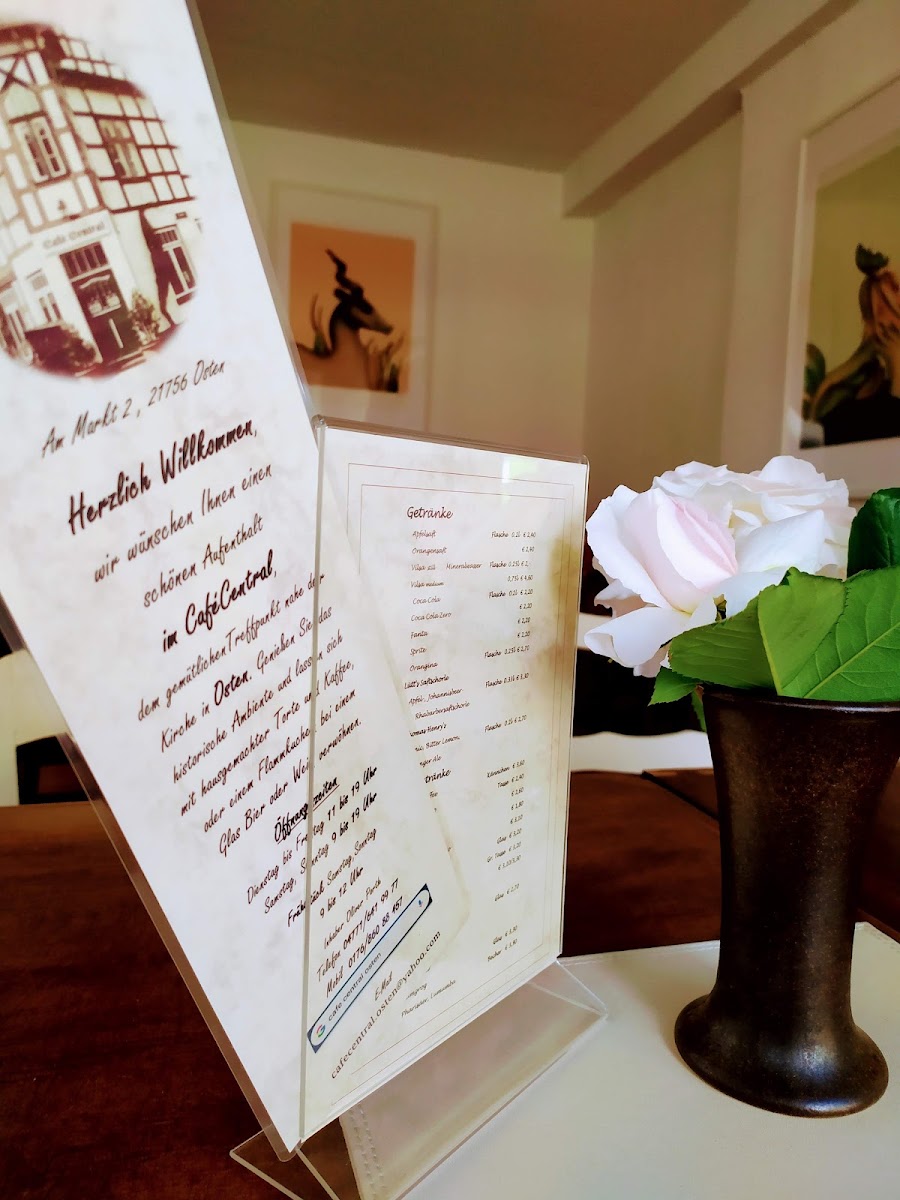 Café Central
Am Markt 2, 21756 Osten
Herzlich Willkommen,
wir wünschen Ihnen einen
schönen Aufenthalt
im CaféCentral,
dem gemütlichen Treffpunkt nahe der
Kirche in Osten. Genießen Sie das
historische Ambiente und lassen sich
mit hausgemachter Torte und Kaffee,
oder einem Flammkuchen bei einem
Glas Bier oder Wein verwöhnen.
Öffnungszeiten
Dienstag bis Freitag 11 bis 19 Uhr
Samstag, Sonntag 9 bis 19 Uhr
Frühstück Samstag, Sonntag
9 bis 12 Uhr
Inhaber Oliver
Telefon 04771/641 99 77
Mobil 0176/860 88 457
cafe central osten
E-Mail
cafecentral.osten@yahoo.com
Getränke
Apfelsaft Flasche 0,2l € 2,40
Orangensaft € 2,40
Vilsa still Mineralwasser Flasche 0,25l € 2,
Vilsa medium 0,75l € 4,60
Coca Cola Flasche 0,2l € 2,20
Coca Cola Zero € 2,20
Fanta € 2,20
Sprite € 2,20
Orangina Flasche 0,25l € 2,70
Lütt's Saftschorle
Apfel, Johannisbeer Flasche 0,33l € 3,30
Rhabarbersaftschorle
Thomas Henry's Flasche 0,2l € 2,70
Bitter Lemon,
Ale
Kännchen € 3,60
Tasse € 2,40
€ 2,60
€ 2,80
€ 3,20
Glas € 3,20
Gr. Tasse
Glas € 2,70
Glas € 3,30
Becher € 3,90
Pharisäer, Lumumba